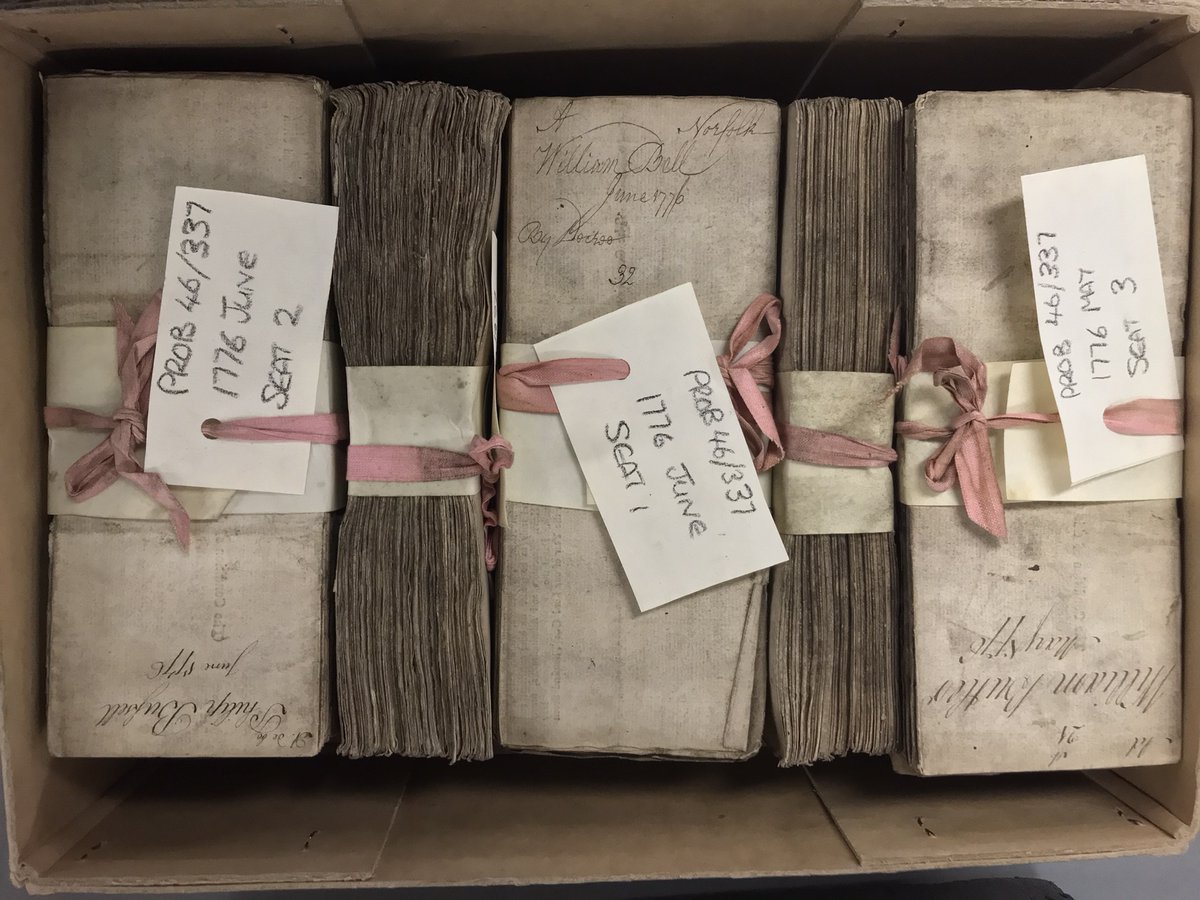 PROB 46/337
1776 JUNE
SEAT 2
Philip
June 1776
A Norfolk
William Ball
June 1776
By
32
PROB 46/337
1776 JUNE
SEAT 1
PROB 46/337
1776 MAY
SEAT 3
William Butler
May 1776
21